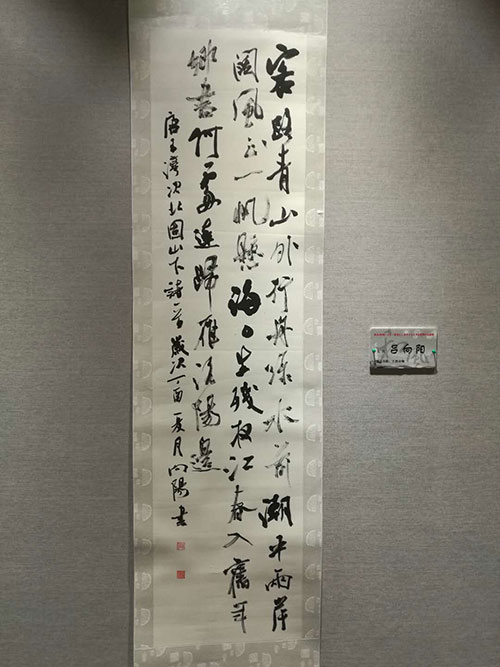 客路青山外行舟绿水前潮平兩岸
闊風正一帆懸海日生殘夜江春入舊年
鄉書何處達歸雁洛陽邊
唐王灣次北固山下詩一首歲次丁酉夏月向陽书
吕向阳